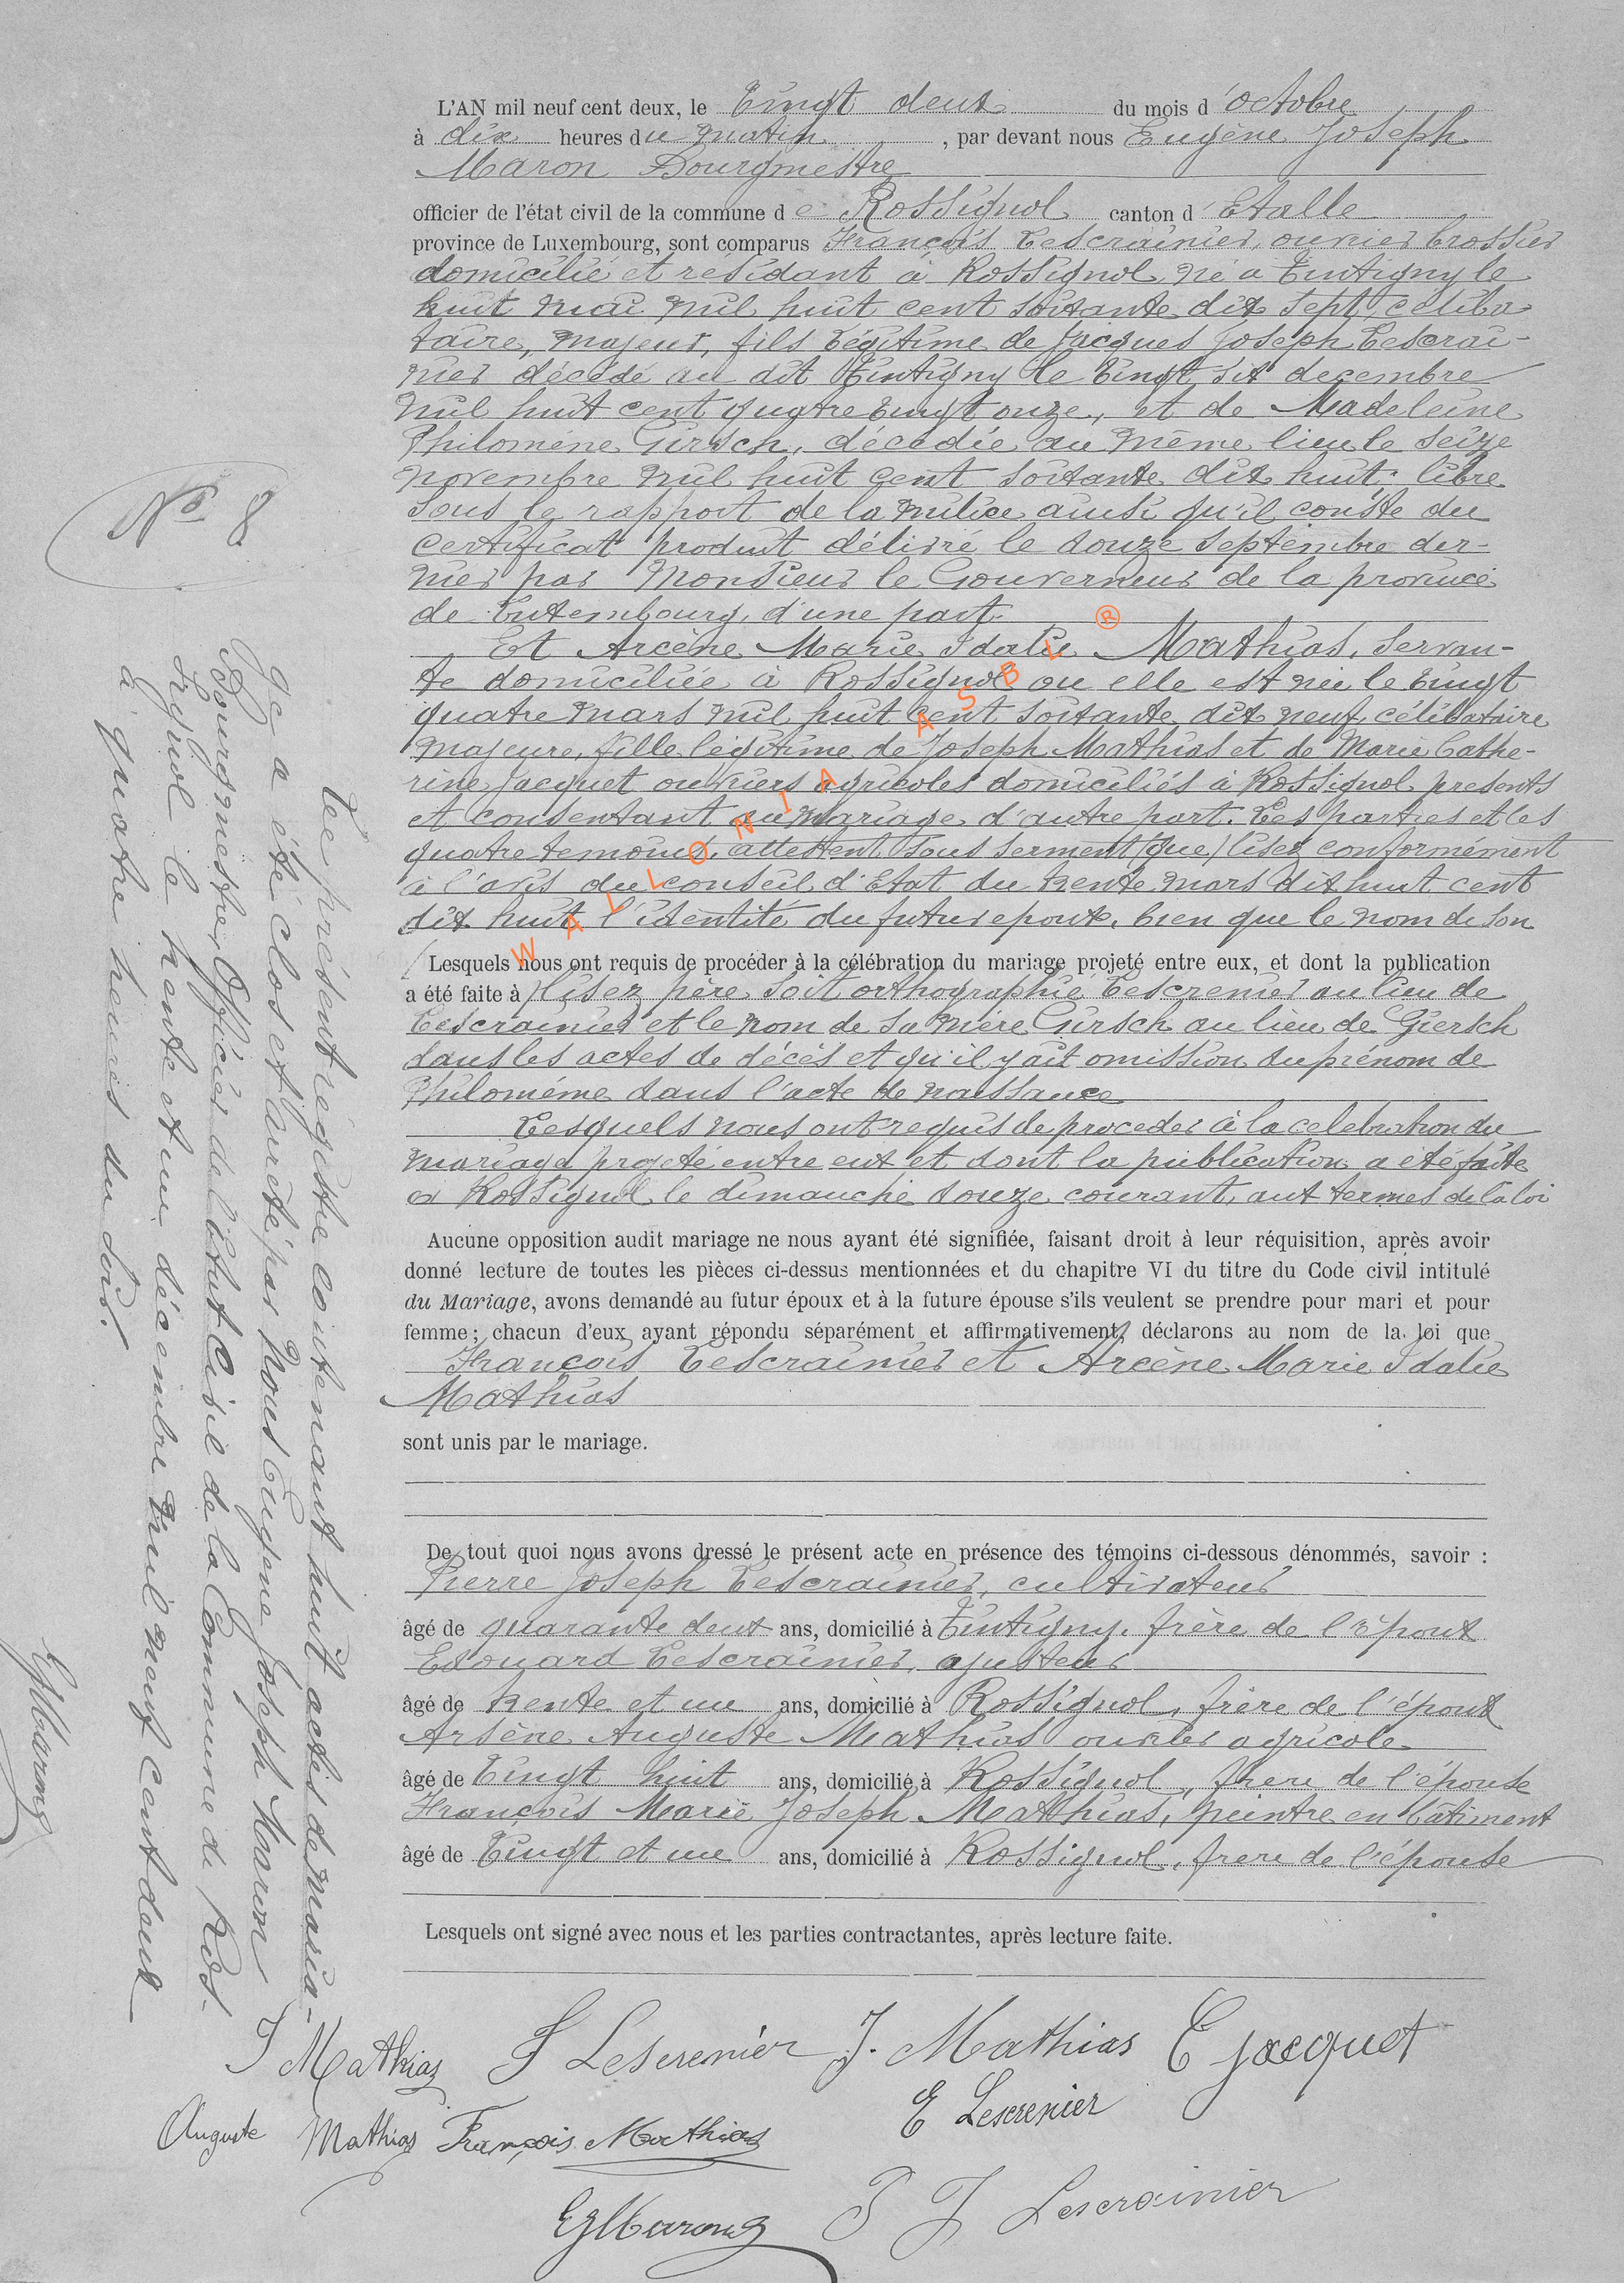 L'AN mil neuf cent deux, le Vingt deux du mois d'octobre
à dix heures du matin, par devant nous Eugène Joseph
Maron Bourgmestre
officier de l'état civil de la commune de Rossignol canton d'Etalle
province de Luxembourg, sont comparus François Lescrainier, ouvrier brossier
domicilié et résidant à Rossignol, né à Tintigny le
huit mai mil huit cent soixante dix sept, céliba-
taire, majeur, fils légitime de Jacques Joseph Lescrai-
nier décédé au dit Tintigny le Vingt six decembre
mil huit cent quatre Vingt onze, et de Madeleine
Philomène Girsch, décédée au même lieu le seize
novembre mil huit cent soixante dix huit; libre
sous le rapport de la milice ainsi qu'il conste du
certificat produit délivré le douze septembre der-
nier par Monsieur le Gouverneur de la province
de Luxembourg, d'une part.
Et Arcène Marie Idalie Mathias, servan-
te domiciliée à Rossignol ou elle est née le Vingt
quatre mars mil huit cent soixante dix neuf, célibataire
majeure, fille légitime de Joseph Mathias et de Marie Cathe-
rine Jacquet ouvriers agricoles domiciliés à Rossignol, présents
et consentant au mariage, d'autre part. Les parties et les
quatre témoins, attestent sous serment (que) lisez conformément
à l'avis du conseil d'Etat du trente mars dix huit cent
dix huit l'identité du futur epoux, bien que le nom de son
Lesquels nous ont requis de procéder à la célébration du mariage projeté entre eux, et dont la publication
a été faite à (lisez père soit orthographié Lescrenier au lieu de
Lescrainier et le nom de sa mère Girsch au lieu de Giersch
dans les actes de décès et qu'il y ait omission du prénom de
Philomème dans l'acte de naissance
Lesquels nous ont requis de proceder à la celebration du
mariage projeté entre eux et dont la publication a été faite
à Rossignol le dimanche douze courant, aux termes de la loi
Aucune opposition audit mariage ne nous ayant été signifiée, faisant droit à leur réquisition, après avoir
donné lecture de toutes les pièces ci-dessus mentionnées et du chapitre VI du titre du Code civil intitulé
du Mariage, avons demandé au futur époux et à la future épouse s'ils veulent se prendre pour mari et pour
femme; chacun d'eux ayant répondu séparément et affirmativement, déclarons au nom de la loi que
François Lescrainier et Arcène Marie Idalie
Mathias
sont unis par le mariage.
De tout quoi nous avons dressé le présent acte en présence des témoins ci-dessous dénommés, savoir :
Pierre Joseph Lescrainier, cultivateur
âgé de quarante deux ans, domicilié à Tintigny, frère de l'époux
Edouard Lescrainier, ajusteur
âgé de trente et un ans, domicilié à Rossignol, frère de l'époux
Arsène Auguste Mathias ouvrier agricole
âgé de Vingt huit ans, domicilié à Rossignol, frere de l'épouse
François Marie Joseph Mathias, peintre en bâtiment
âgé de Vingt et un ans, domicilié à Rossignol, frere de l'épouse
Lesquels ont signé avec nous et les parties contractantes, après lecture faite.
I Mathias F Lescrenier J. Mathias C Jacquet
E Lescrenier
Auguste Mathias François Mathias
EJMaron P J Lescrainier
No 8
Le présent registre contenant huit actes de maria-
ge a été clos et arrêté par Nous Eugène Joseph Maron
Bourgmestre, Officier de l'état Civil de la Commune de Ros-
signol le trente et un décembre mil neuf cent deux
à quatre heures du soir.
EJMaron
WALLONIA ASBL ®